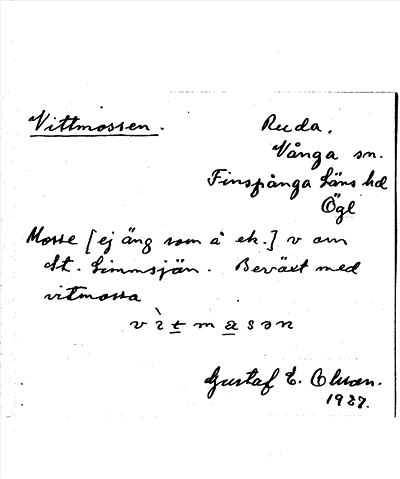 Vittmossen. Ruda.
Vånga sn.
Finspånga Läns hd
Ögl
Mosse [ej äng som å ek.] v om
St. Limmsjön. Beväxt med
vitmossa
v ì t m a s ə n
Gustaf E. Olsson.
1927.